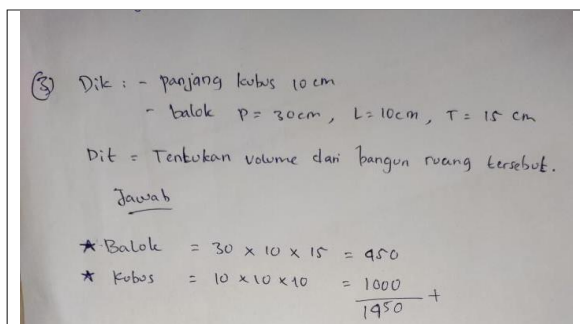 ③ Dik : - panjang kubus 10 cm
- balok P = 30cm, L = 10cm, T = 15 cm
Dit = Tentukan volume dari bangun ruang tersebut.
Jawab
* Balok = 30 x 10 x 15 = 450
* Kubus = 10 x 10 x 10 = 1000 +
1950